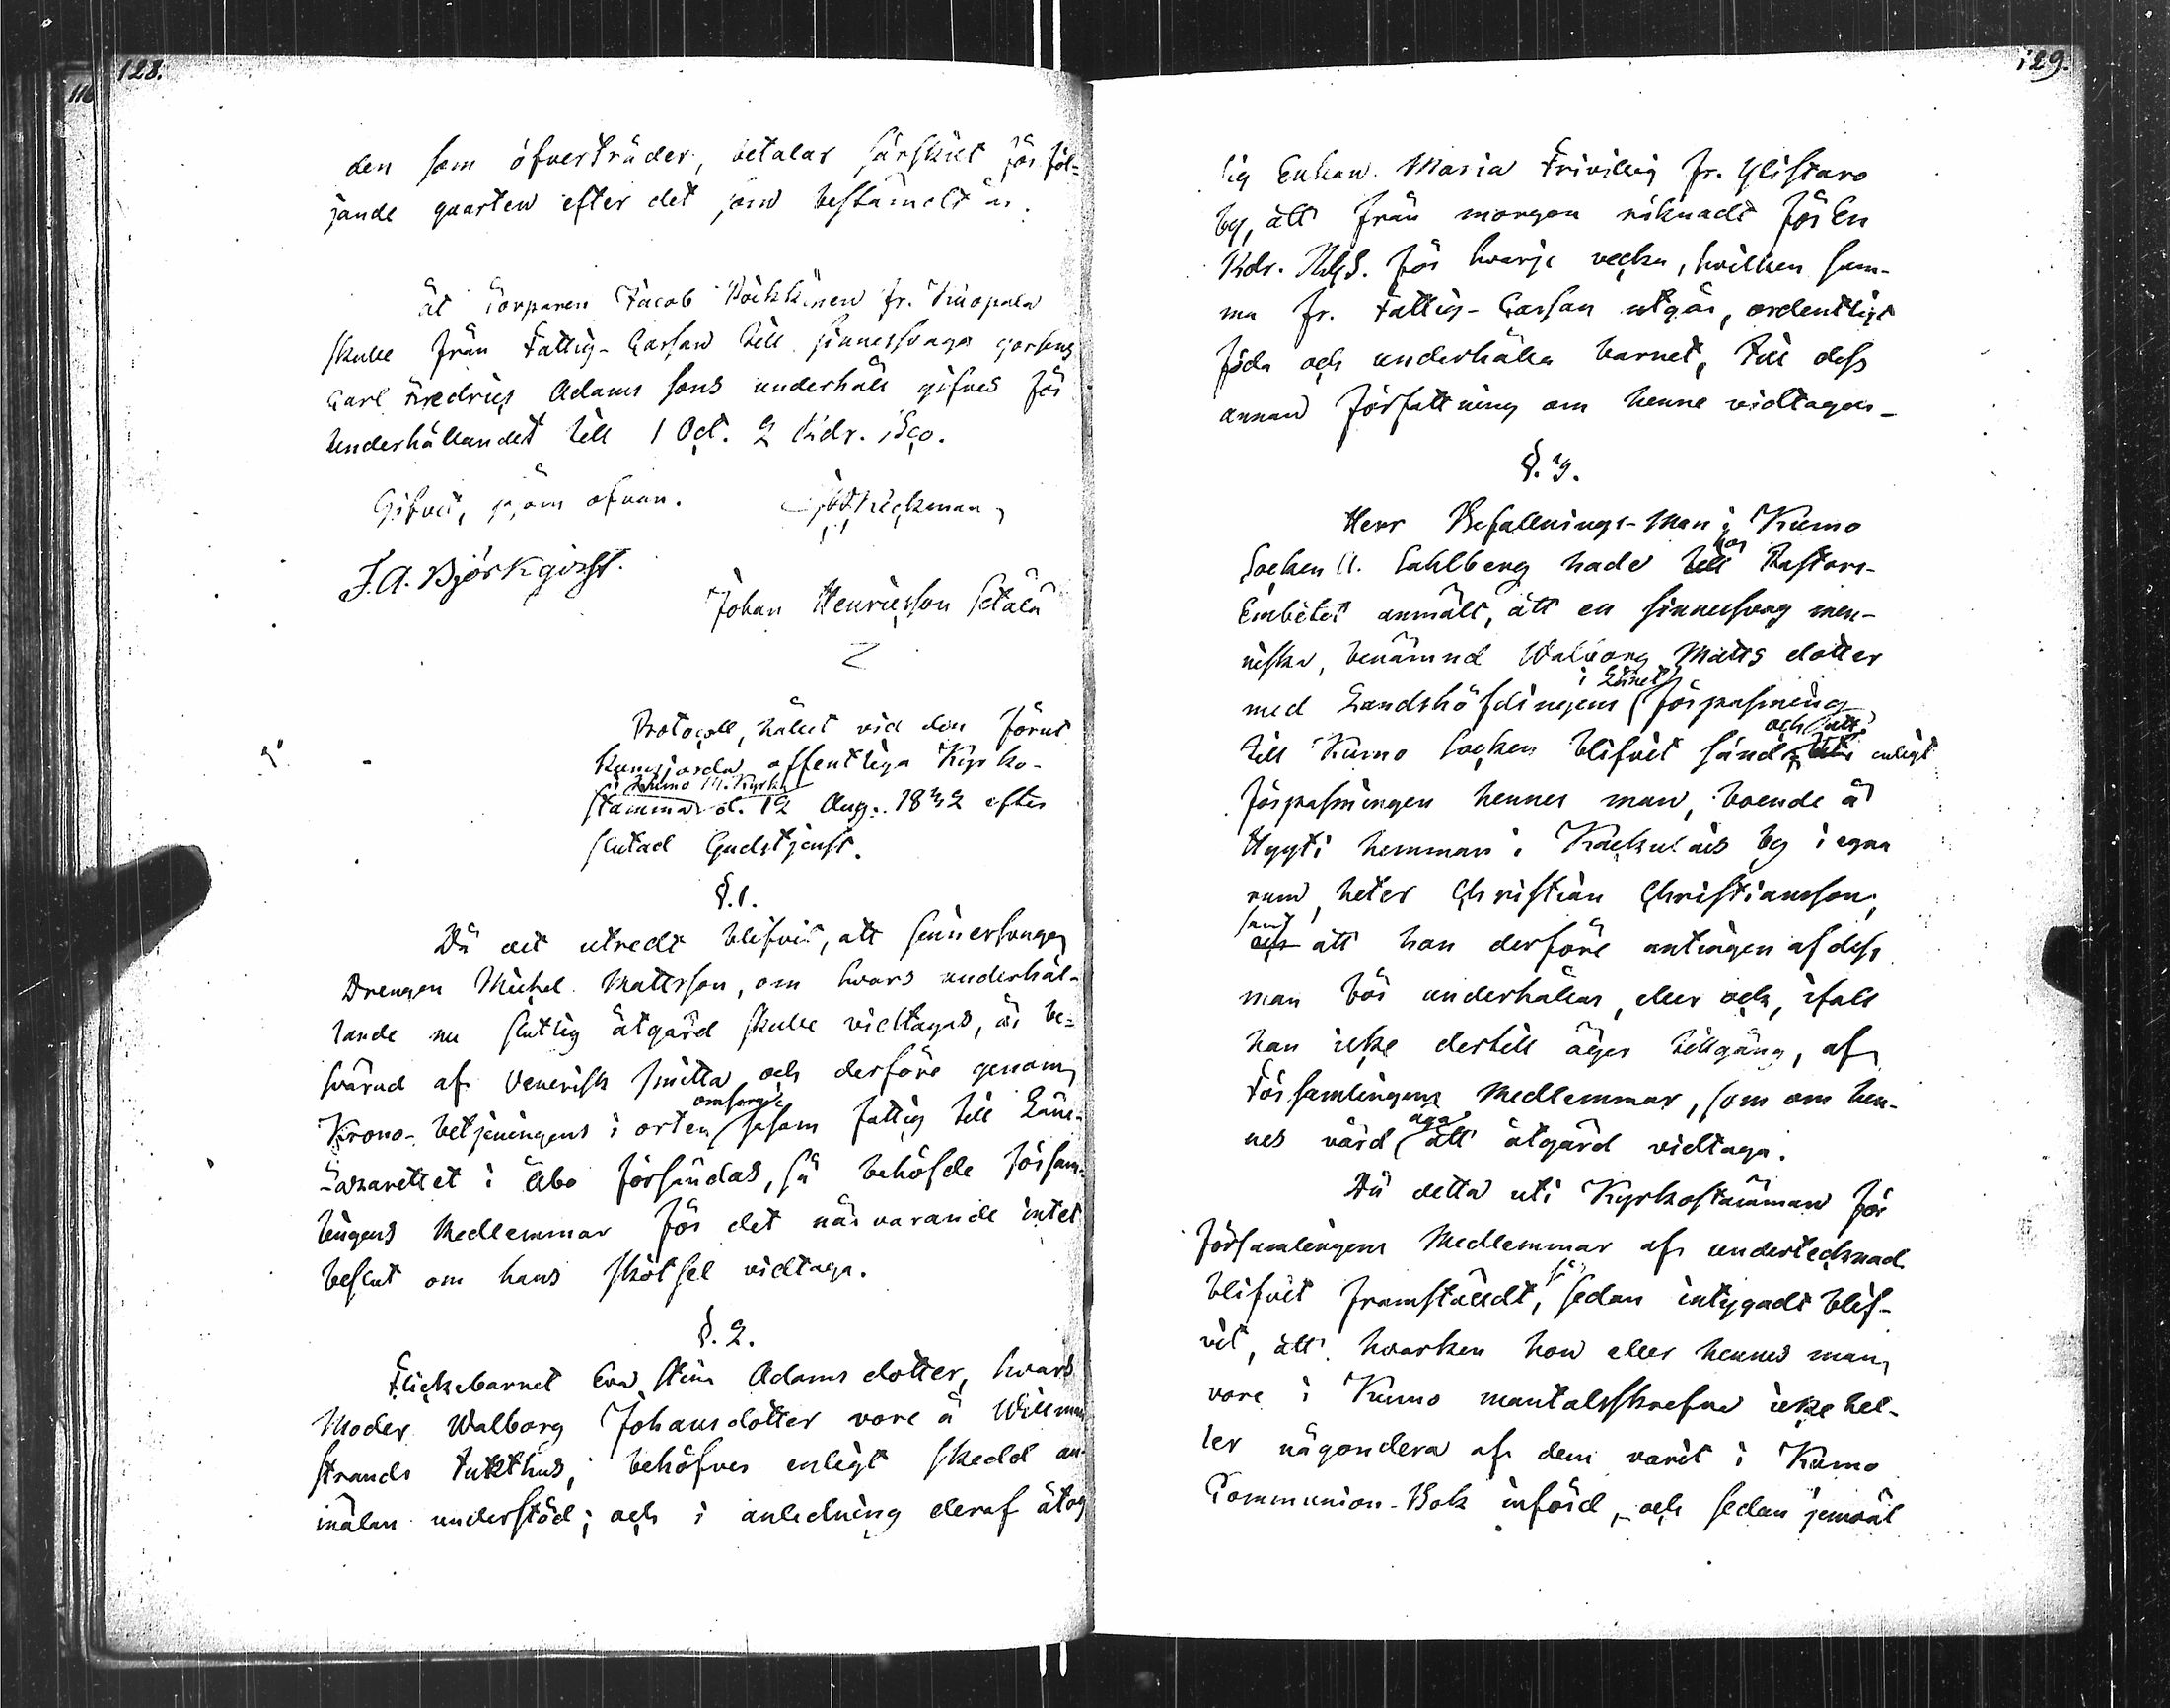 128.
116
den som öfverträder, betalar särskilt för föl-
jande quarten efter det som bestämdt är.
Åt Torparen Jacob fr. Knopala
skulle från Fattig-Cassan till sinnessvaga gossens
Carl Fredrics Adams sons underhåll gifves för
Underhållandet till 1 Oct. 2 Rdr. Bco.
Gifvit, som ofvan.
J.A. Björkqvist.
Johan Henricsson Setälä
Protocoll, hållit vid den förut
kungjorda offentliga Kyrko-
i Kumo M. Kyrka
stämma d. 12 Aug. 1832 efter
slutad Gudstjenst.
§.1.
Då det utredt blifvit, att sinnessvage
Drengen Michel Mattsson, om hvars underhål-
lande nu slutlig åtgärd skulle vidtagas, är be-
svärad af Venerisk smitta och derföre genom
omsorg
Krono-betjeningens i orten såsom fattig till Läns-
Lazarettet i Åbo försändas, så behöfde försam-
lingens Medlemmar för det närvarande intet
beslut om hans skötsel vidtaga.
§.2.
Flickebarnet Eva Stina Adams dotter, hvars
Moder Walborg Johansdotter vore å Willman-
strands tukthus, behöfves enligt skedd an-
mälan understöd; och i anledning deraf åtog
129.
sig Enkan Maria Frivillig fr. Ylistaro
by, att från morgon räknadt för En
Rdr. Rgs. för hvarje vecka, hvilken sam-
ma fr. Fattig-Cassan utgår, ordentligt
föda och underhålla barnet, till dess
annan författning om henne vidtages-
§.3.
Herr Befallnings-Man i Kumo
hos
Socken A. Cahlberg hade till Pastors-
Embetet anmält, att en sinnessvag men-
niska, benämnd Walborg Matts dotter
i Länet
med Landshöfdingens förpasning
och att
till Kumo Socken blifvit sänd, enligt
förpasningen hennes man, boende å
Hyyti hemman i Käckulais by i egna
rum, heter Christian Christiansson,
samt
och att hon derföre antingen af dess
man bör underhållas, eller och, ifall
han icke dertill äger tillgång, af
Församlingens Medlemmar, som om hen-
äga
nes vård att åtgärd vidtaga.
Då detta uti Kyrkostämman för
församlingens Medlemmar af undertecknad
så
blifvit framställdt, sedan intygadt blif-
vit, att hvarken hon eller hennes man
vore i Kumo mantalsskrefne icke hel-
ler någondera af dem varit i Kumo
Communion-Bok införd, och sedan jemväl